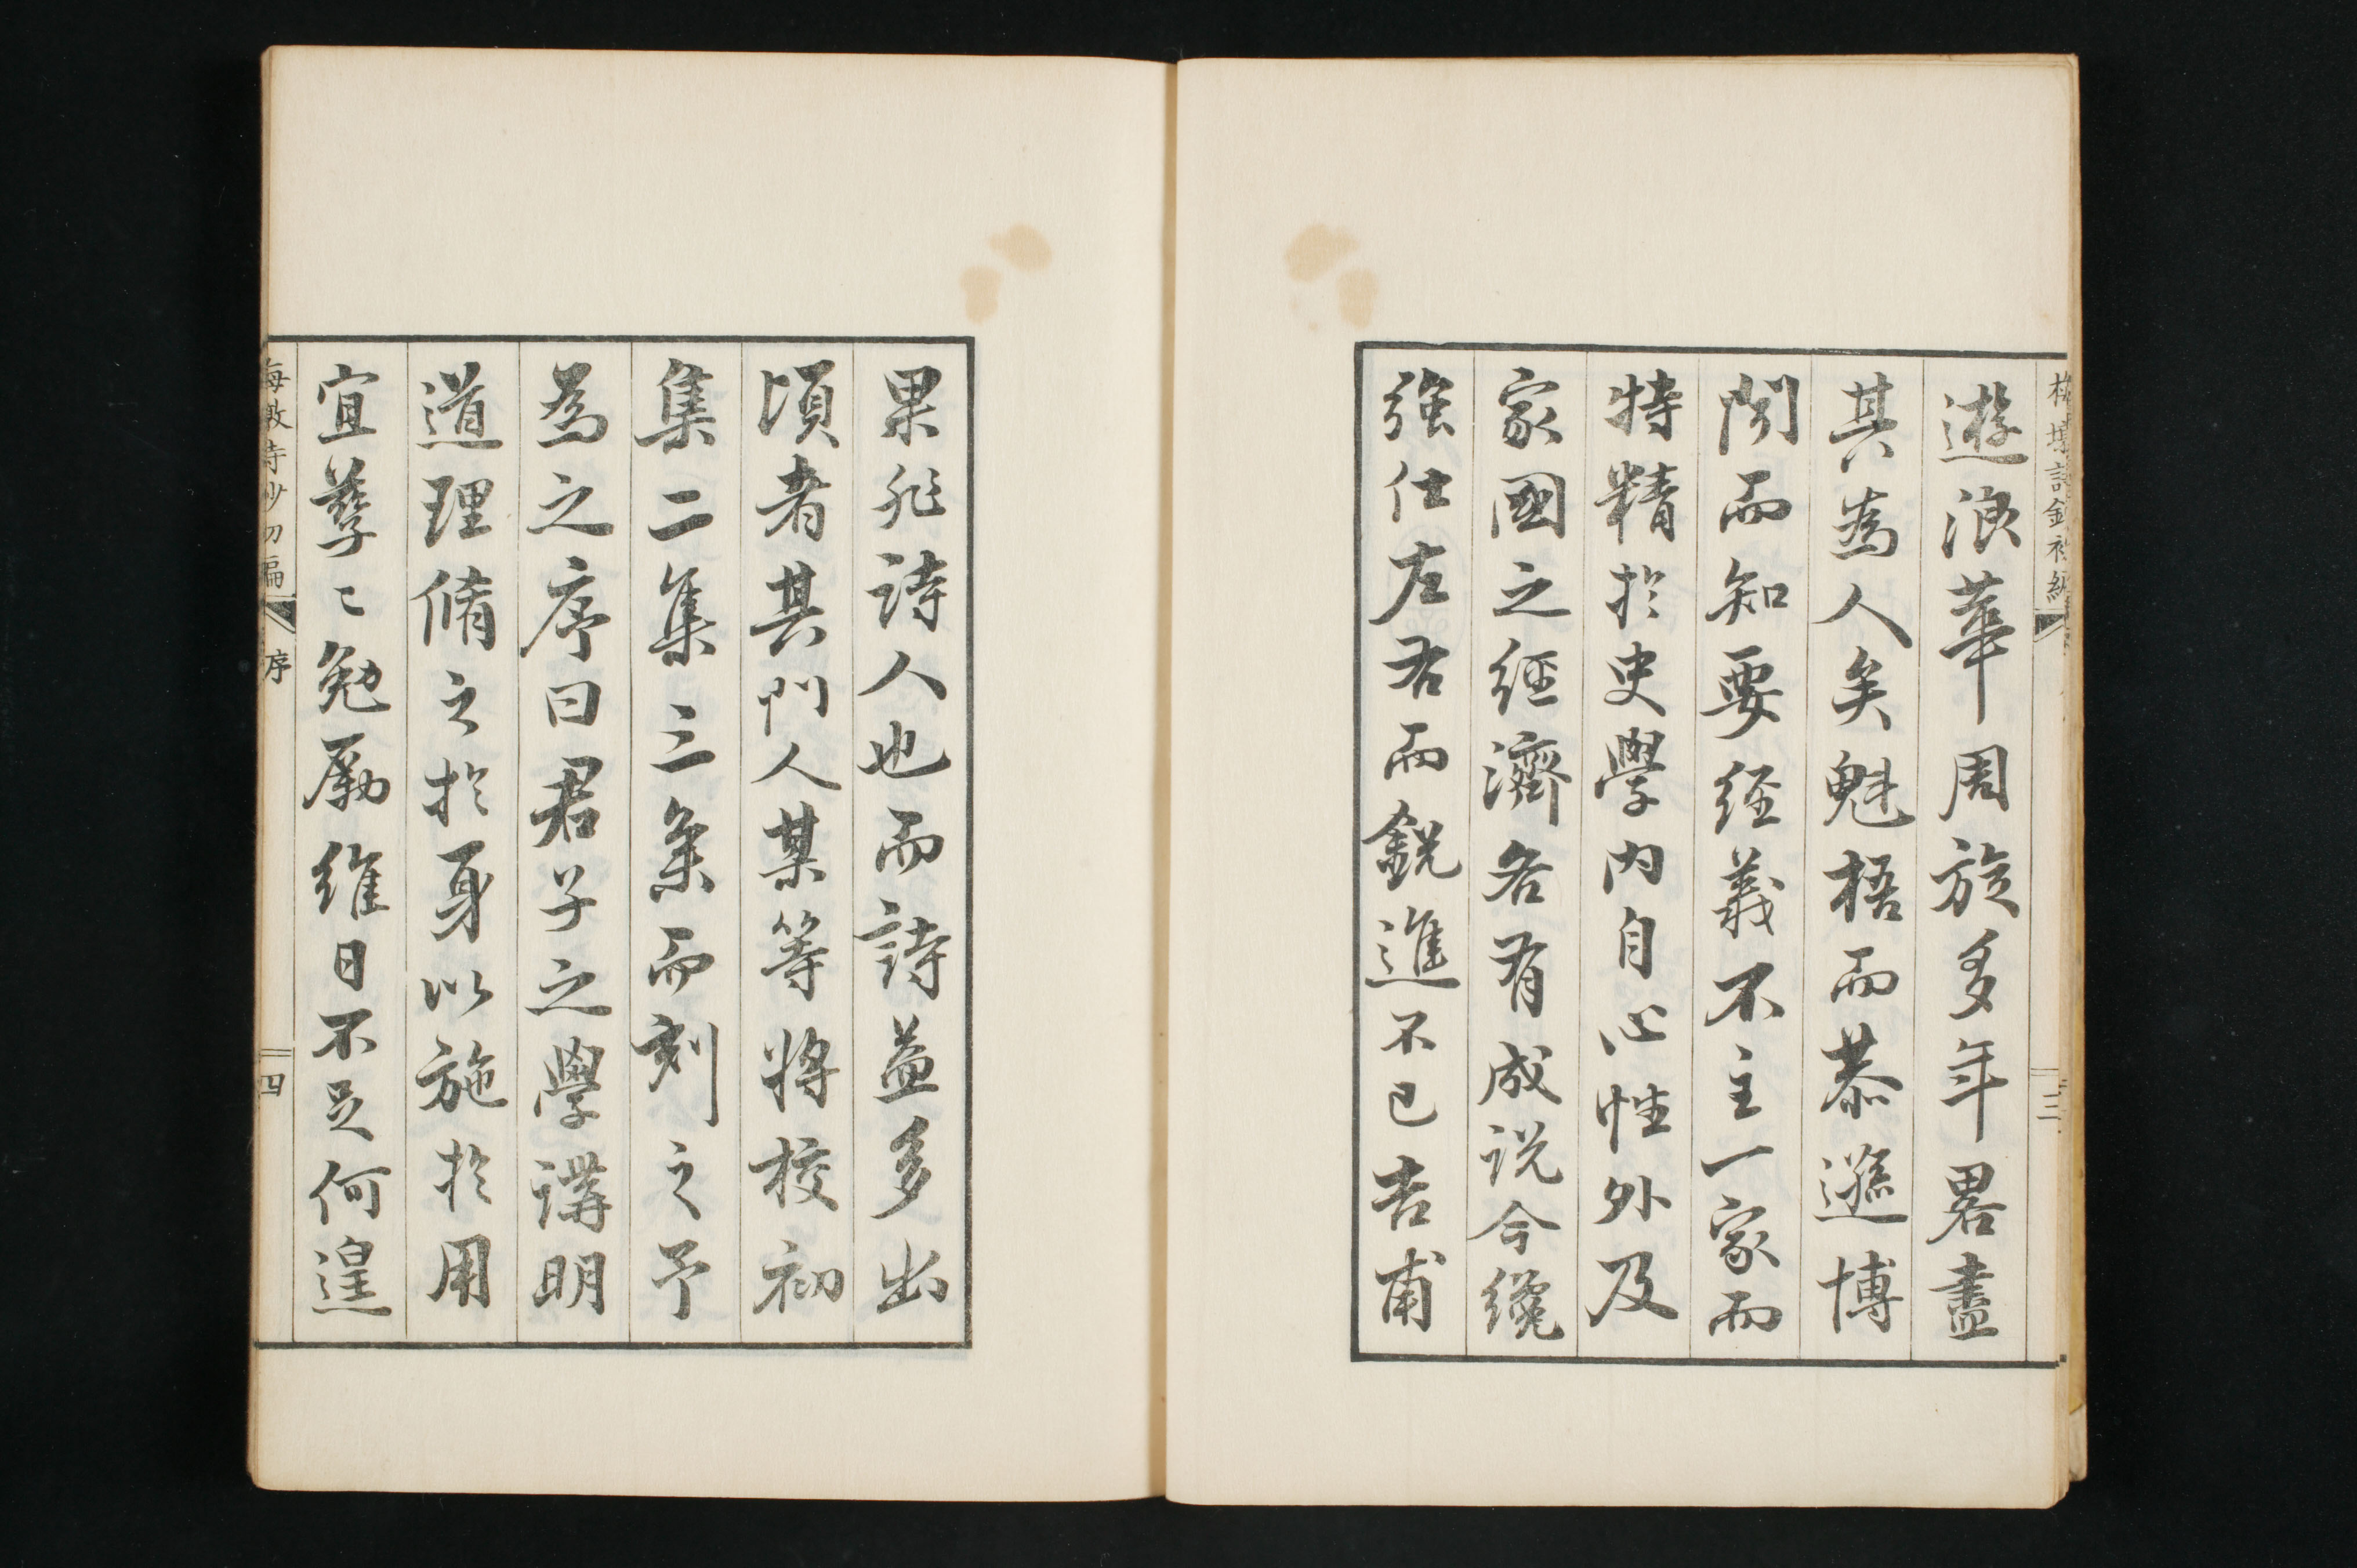 遊浪華周旋多年畧盡
其為人矣魁梧而恭遜博
聞而知要經義不主一家而
特精於史學内自心性外及
家國之經濟各有成説今纔
強仕左右而鋭進不已吉甫
三
果非詩人也而詩益多出
頃者其門人某等將校初
集二集三集而刻之予
為之序曰君子之學講明
道理脩之於身以施於用
宜孳〻勉勵維日不足何遑
序
四